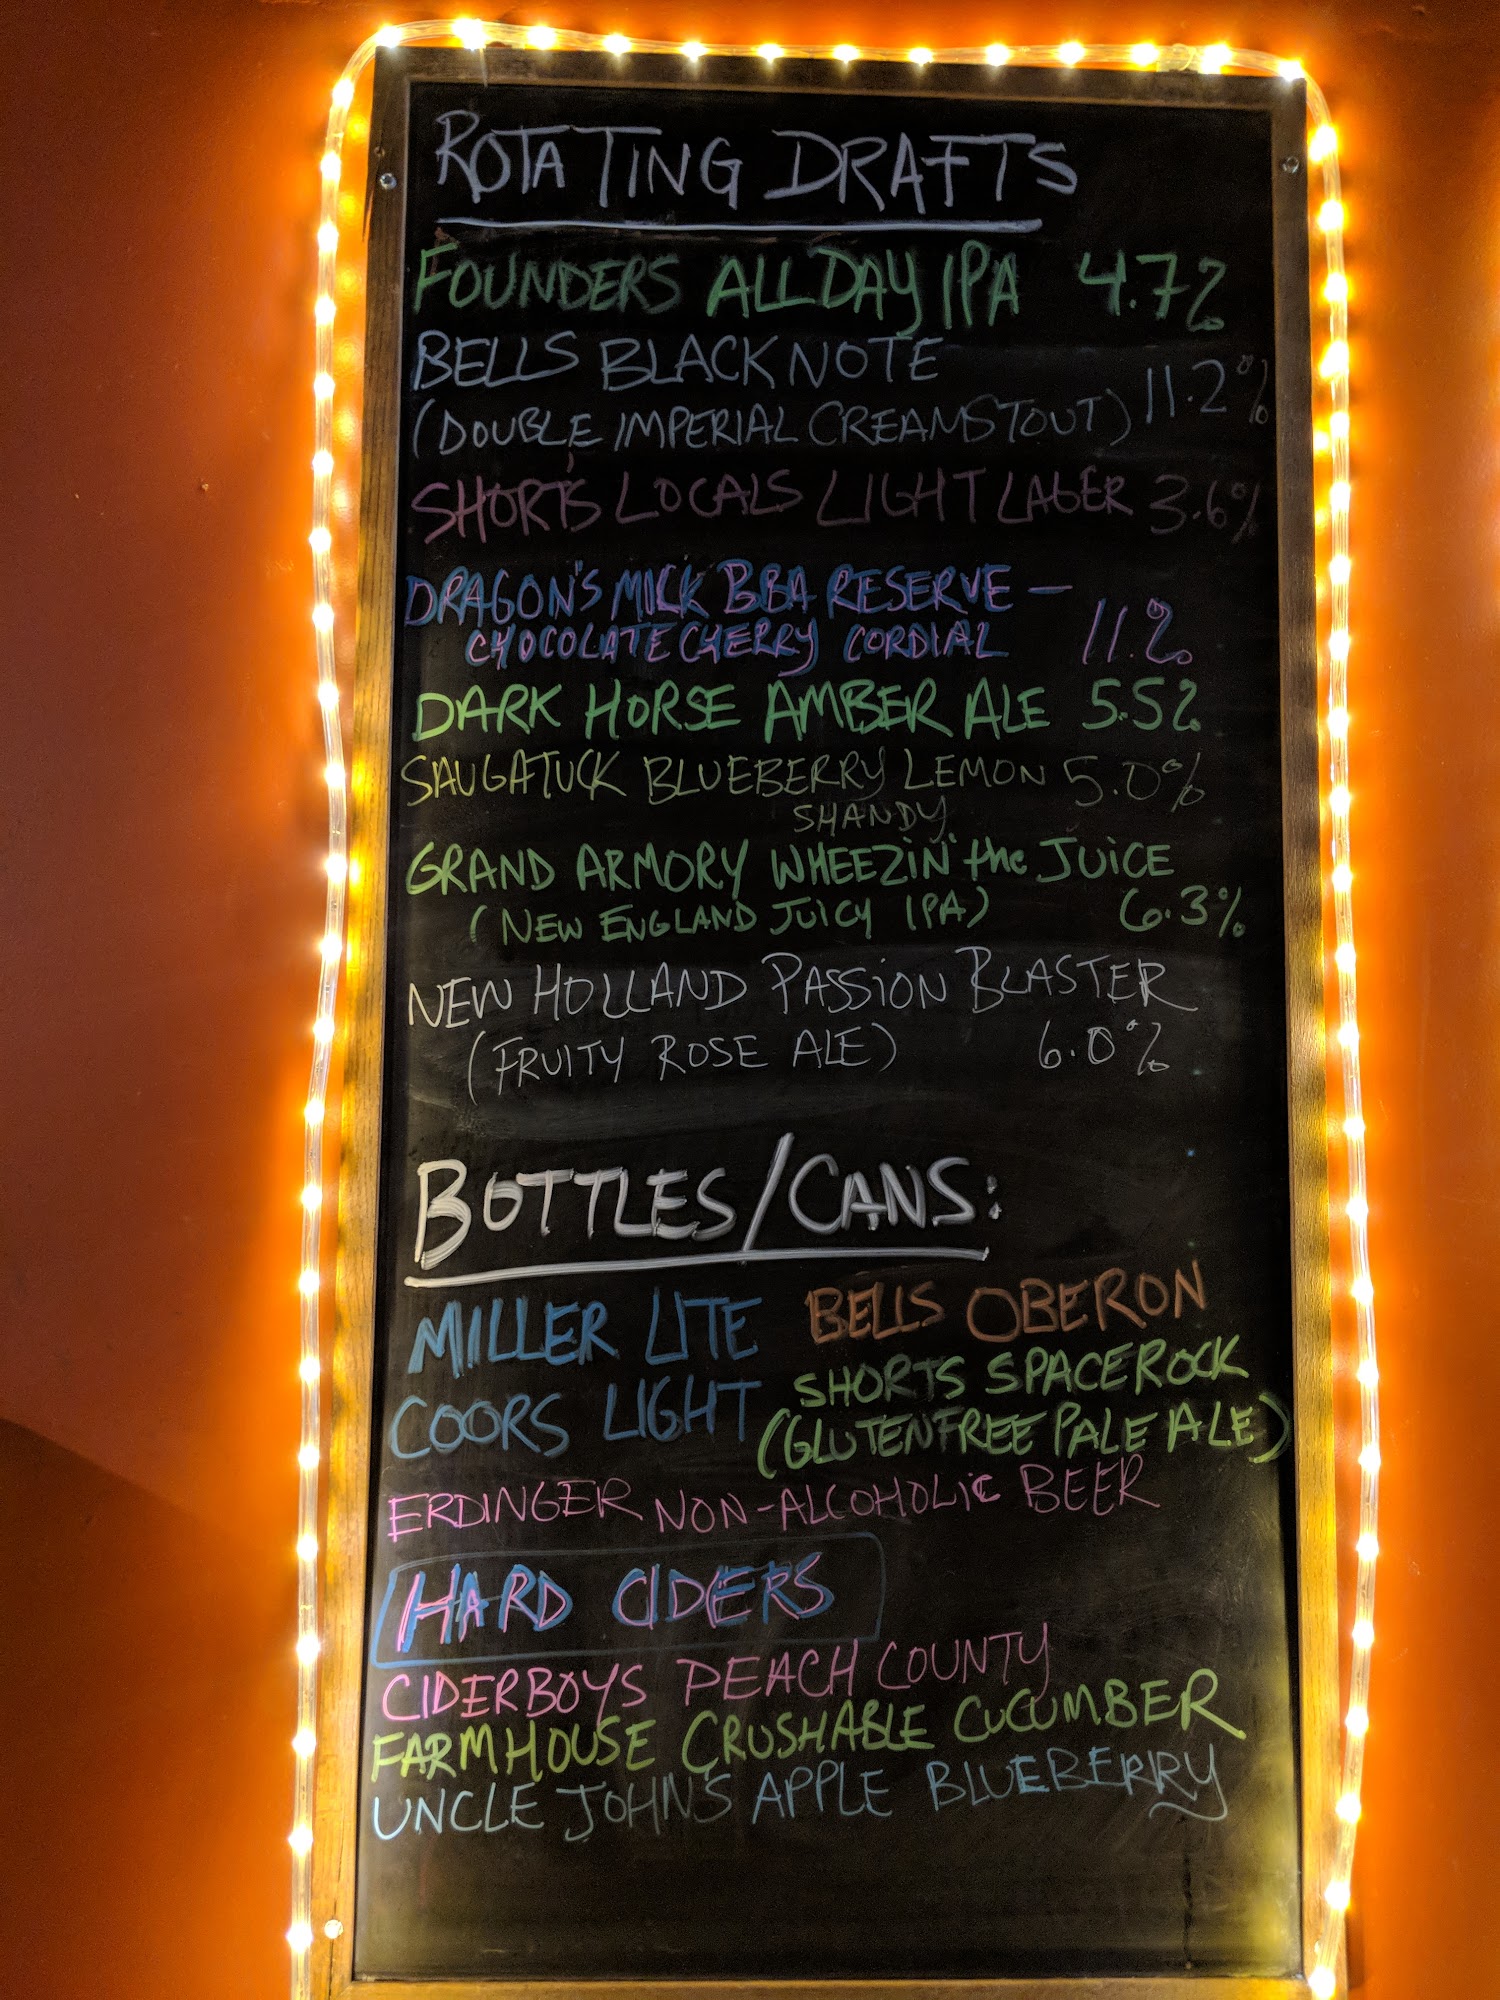 ROTATING DRAFTS
FOUNDERS ALL DAY IPA 4.7%
BELLS BLACK NOTE
(DOUBLE IMPERIAL CREAM STOUT) 11.2%
SHORT'S LOCALS LIGHT LAGER 3.6%
DRAGON'S MILK BBA RESERVE —
CHOCOLATE CHERRY CORDIAL 11%
DARK HORSE AMBER ALE 5.5%
SAUGATUCK BLUEBERRY LEMON 5.0%
SHANDY
GRAND ARMORY WHEEZIN' the JUiCE
(NEW ENGLAND JUiCY IPA) 6.3%
NEW HOLLAND PASSiON BLASTER
(FRUITY ROSE ALE) 6.0%
BOTTLES/CANS:
MILLER LITE BELLS OBERON
COORS LIGHT SHORTS SPACEROCK
(GLUTEN FREE PALE ALE)
ERDINGER NON-ALCOHOLiC BEER
HARD CIDERS
CIDERBOYS PEACH COUNTY
FARMHOUSE CRUSHABLE CUCUMBER
UNCLE JOHN'S APPLE BLUEBERRY